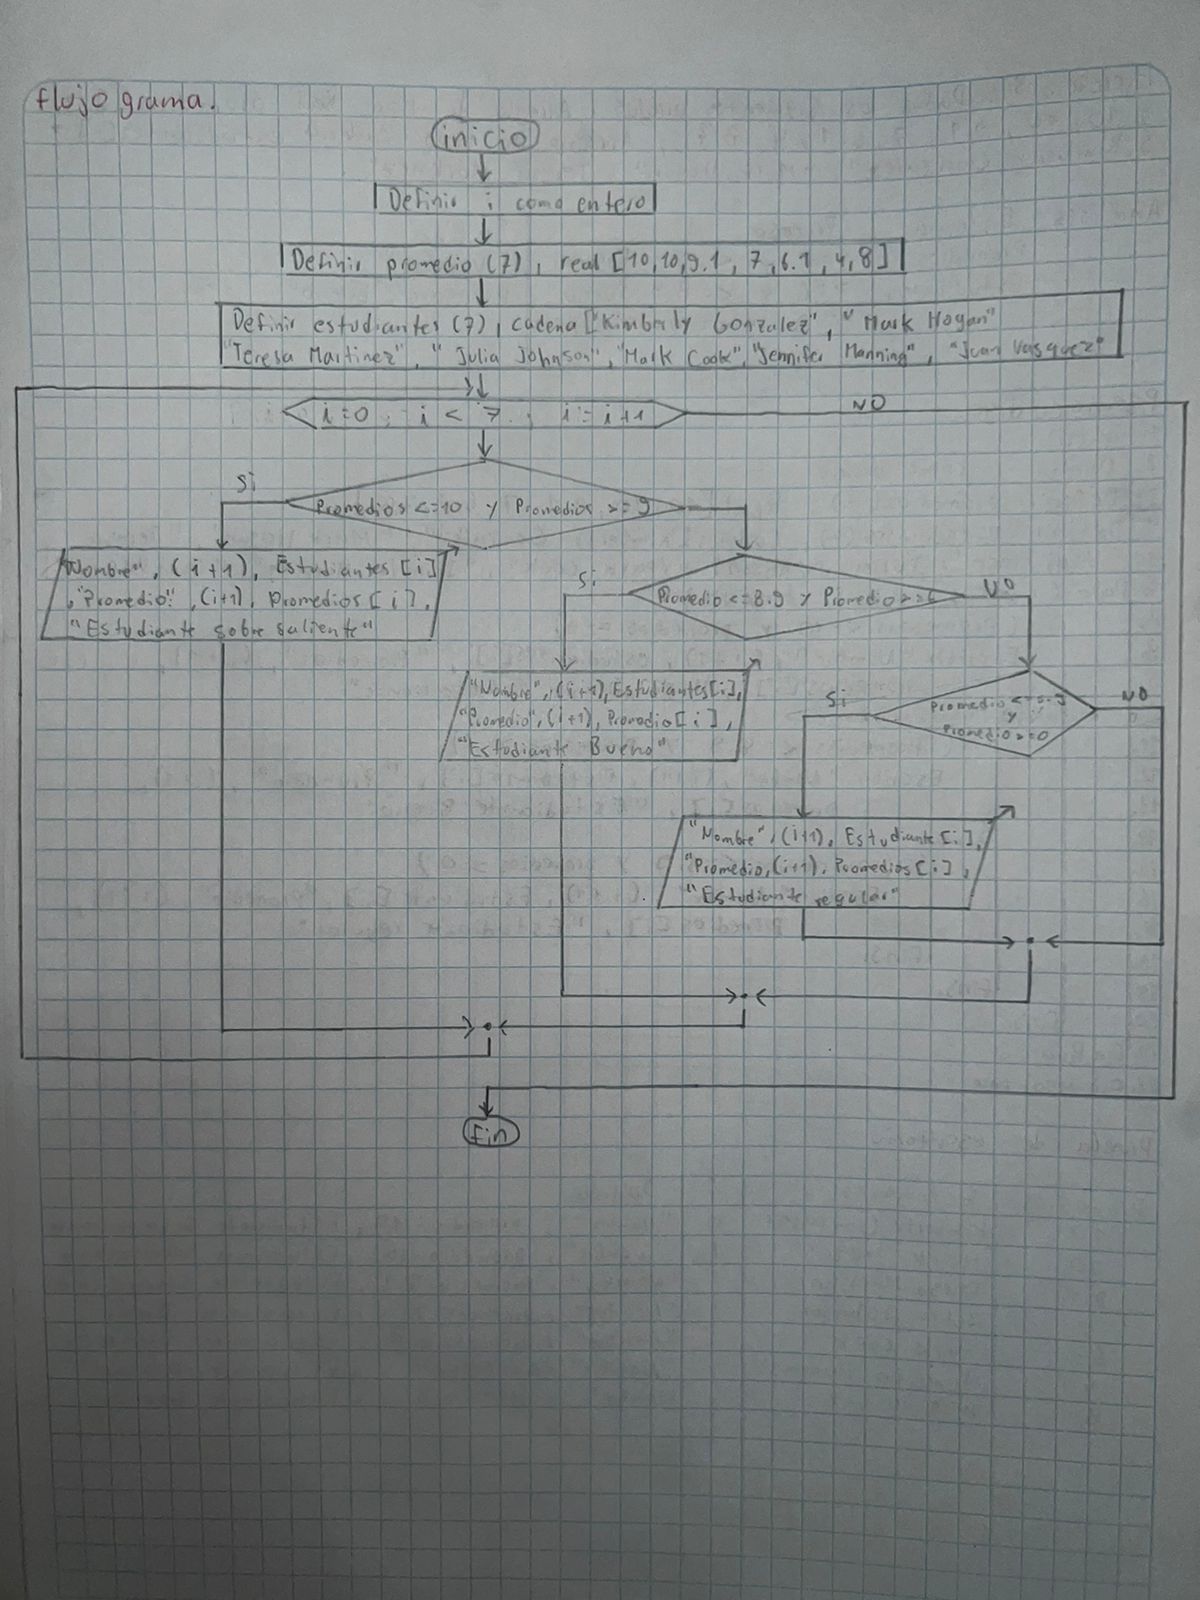 flujo grama.
inicio
Definir i como entero
Definir promedio (7), real [10,10,9.1, 7,6.1, 4,8]
Definir estudiantes (7), cadena ["Kimberly Gonzalez", "Mark Hogan"
"Teresa Martinez", "Julia Johnson", "Mark Cook", "Jennifer Manning", "Juan Vasquez"
i=0 ; i < 7 ; i = i+1
NO
Si
Promedios <=10 y Promedios >= 9
"Nombre", (i+1), Estudiantes [i]
, "Promedio:", (i+1), Promedios [i],
"Estudiante sobre saliente"
Si
Promedio <= 8.9 y Promedio >= 6
NO
"Nombre", (i+1), Estudiantes[i],
"Promedio", (i+1), Promedio[i],
"Estudiante Bueno"
Si
Promedio <=
y
Promedio >=0
NO
"Nombre", (i+1), Estudiante [i],
"Promedio, (i+1), Promedios [i],
"Estudiante regular"
Fin